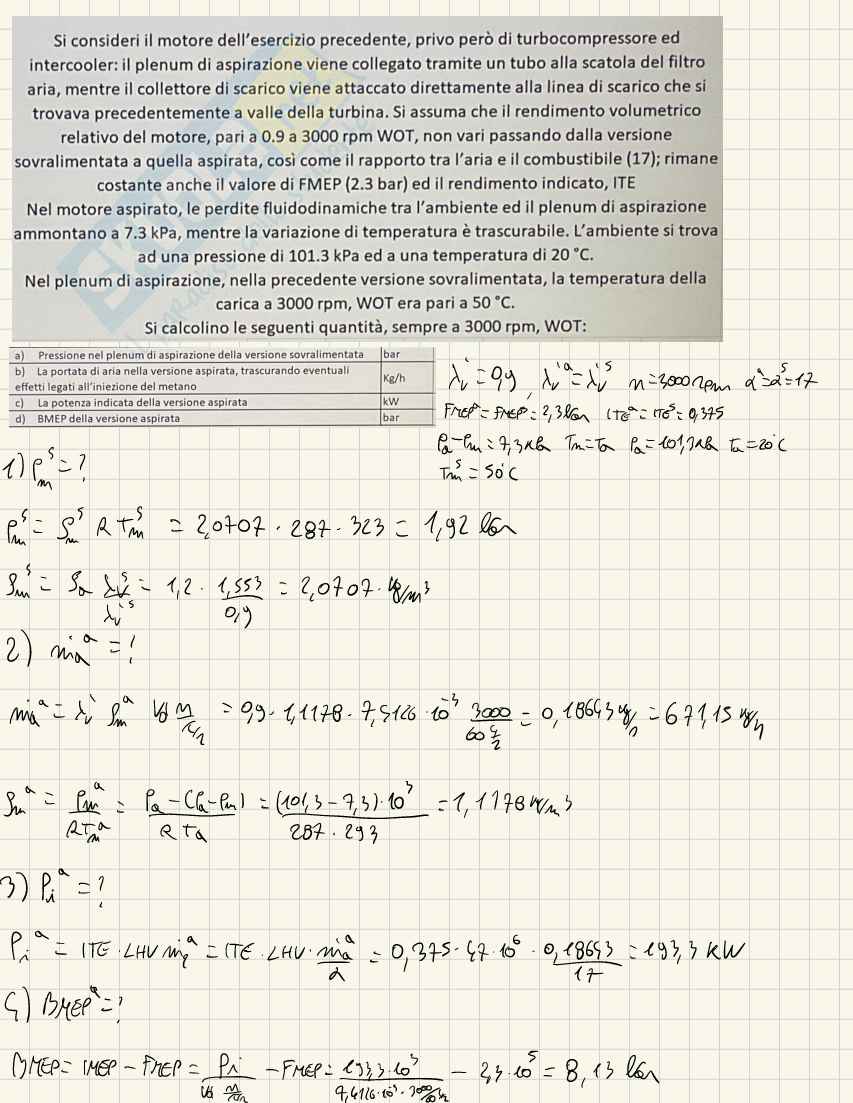 Si consideri il motore dell'esercizio precedente, privo però di turbocompressore ed
intercooler: il plenum di aspirazione viene collegato tramite un tubo alla scatola del filtro
aria, mentre il collettore di scarico viene attaccato direttamente alla linea di scarico che si
trovava precedentemente a valle della turbina. Si assuma che il rendimento volumetrico
relativo del motore, pari a 0.9 a 3000 rpm WOT, non vari passando dalla versione
sovralimentata a quella aspirata, così come il rapporto tra l'aria e il combustibile (17); rimane
costante anche il valore di FMEP (2.3 bar) ed il rendimento indicato, ITE
Nel motore aspirato, le perdite fluidodinamiche tra l'ambiente ed il plenum di aspirazione
ammontano a 7.3 kPa, mentre la variazione di temperatura è trascurabile. L'ambiente si trova
ad una pressione di 101.3 kPa ed a una temperatura di 20 °C.
Nel plenum di aspirazione, nella precedente versione sovralimentata, la temperatura della
carica a 3000 rpm, WOT era pari a 50 °C.
Si calcolino le seguenti quantità, sempre a 3000 rpm, WOT:
a) Pressione nel plenum di aspirazione della versione sovralimentata bar
b) La portata di aria nella versione aspirata, trascurando eventuali
effetti legati all'iniezione del metano Kg/h
c) La potenza indicata della versione aspirata kW
d) BMEP della versione aspirata bar
λv' = 0,9, λv'ᵃ = λv'ˢ n = 3000 rpm αᵃ = αˢ = 17
FMEPᵃ = FMEPˢ = 2,3 bar ITEᵃ = ITEˢ = 0,375
Pa - Pm = 7,3 kPa Tm = Ta Pa = 101,3 kPa Ta = 20°C
Tmˢ = 50°C
1) Pmˢ = ?
Pmˢ = ρmˢ R Tmˢ = 2,0707 · 287 · 323 = 1,92 bar
ρmˢ = ρa λvˢ/λv'ˢ = 1,2 · 1,553/0,9 = 2,0707 · kg/m³
2) ṁaᵃ = ?
ṁaᵃ = λv' ρmᵃ Vd n/ = 0,9 · 1,1178 · 7,4126 · 10⁻³ 3000/ = 0,18643 kg/s = 671,15 kg/h
ρmᵃ = Pmᵃ/RTmᵃ = Pa - (Pa - Pm)/R Ta = (101,3 - 7,3) · 10³/287 · 293 = 1,1178 kg/m³
3) Piᵃ = ?
Piᵃ = ITE · LHV ṁ = ITE · LHV · ṁaᵃ/α = 0,375 · 47 · 10⁶ · 0,18643/17 = 193,3 kW
4) BMEPᵃ = ?
BMEP = IMEP - FMEP = Pi/Vd n/ - FMEP = 193,3 · 10³/ - 2,3 · 10⁵ = 8,13 bar